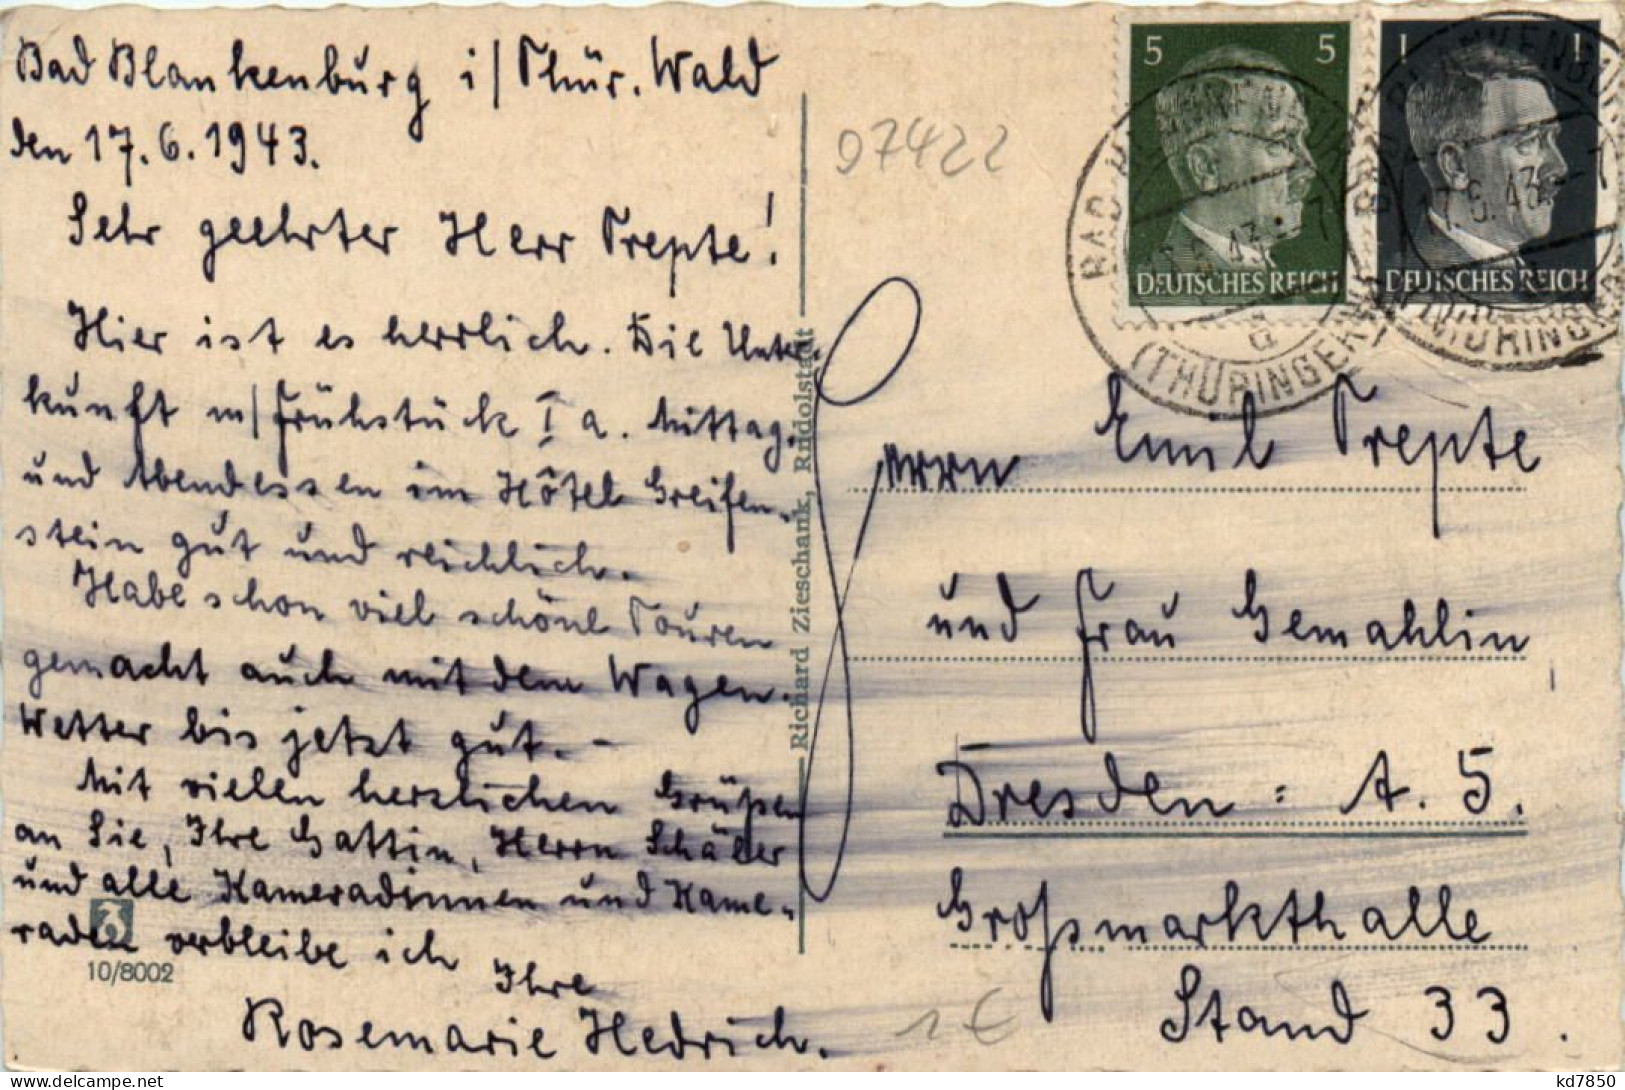 Bad Blankenburg i/Thür. Wald
den 17.6.1943.
Sehr geehrter Herr Trepte!
Hier ist es herrlich. Die Unter-
kunft m/Frühstück I a. Mittag-
und Abendessen im Hôtel Greifen-
stein gut und reichlich.
Habe schon viel schöne Touren
gemacht auch mit dem Wagen.
Wetter bis jetzt gut. -
Mit vielen herzlichen Grüßen
an Sie, Ihre Gattin, Herrn Schäler
und alle Kameradinnen und Kame-
raden verbleibe ich
Ihre
Rosemarie Hedrich.
10/8002
Richard Zieschank, Rudolstadt
07422
5 5
DEUTSCHES REICH
1 1
DEUTSCHES REICH
BAD BLANKENBURG
17.6.43.-7
(THÜRINGERWALD)
a
BAD BLANKENBURG
17.6.43.-7
(THÜRINGERWALD)
Herrn Emil Trepte
und Frau Gemahlin
Dresden: A. 5.
Großmarkthalle
Stand 33.
1 €
kd7850